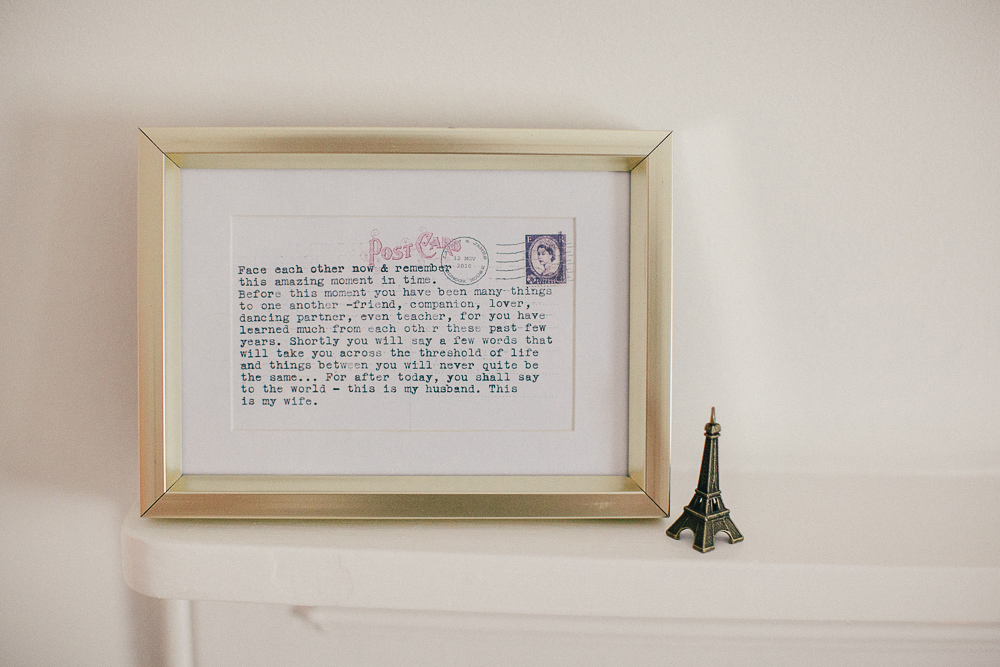 POST CARD
12 NOV
2016
Face each other now & remember
this amazing moment in time.
Before this moment you have been many things
to one another -friend, companion, lover,
dancing partner, even teacher, for you have
learned much from each oth r these past few
years. Shortly you will say a few words that
will take you across the threshold of life
and things between you will never quite be
the same... For after today, you shall say
to the world - this is my husband. This
is my wife.